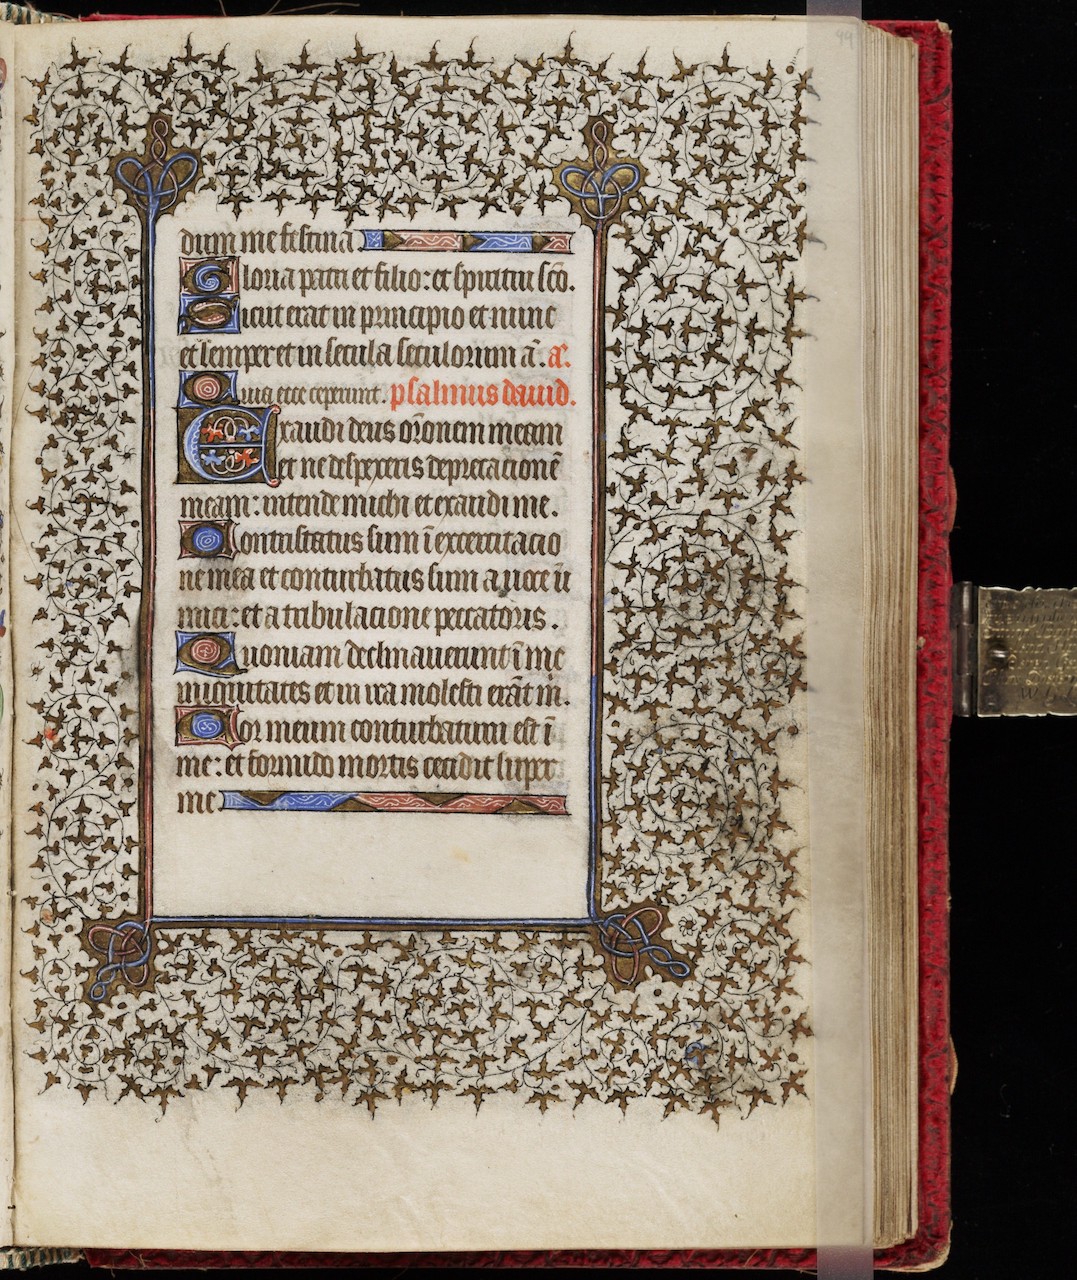 99
dum me festinā
Gloria patri et filio: et spiritui sc̄o.
Sicut erat in principio et nunc
et semper et in secula seculorum ā. a᷒.
Quia ecce ceperunt. psalmus dauid.
Exaudi deus or̄onem meam
et ne despexeris deprecacionē
meam: intende michi et exaudi me.
Contristatus sum ī excercitacio
ne mea et conturbatus sum a uoce ū
mici: et a tribulacione peccatoris.
Quoniam declinauerunt ī me
iniquitates et in ira molesti erāt m̄.
Cor meum conturbatum est ī
me: et formido mortis cecidit super
me